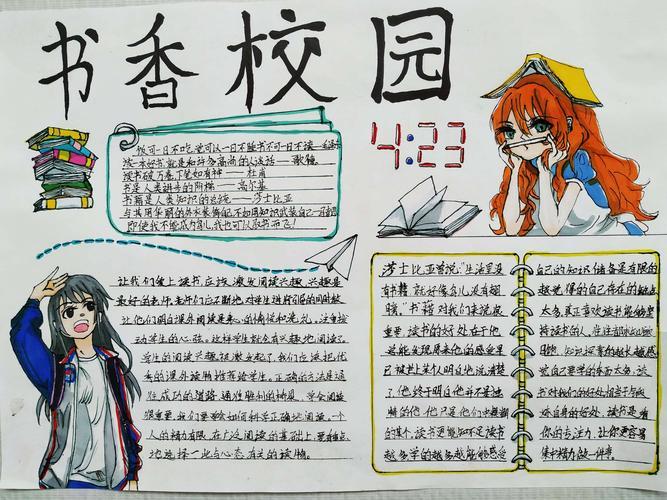 书香校园
4:23
饭可一日不吃，觉可以一日不睡，书不可一日不读
读一本好书，就是和许多高尚的人谈话——歌德
读书破万卷，下笔如有神——杜甫
书是人类进步的阶梯——高尔基
书籍是人类知识的总统——莎士比亚
与其用华丽的外衣装饰自己，不如用知识武装自己
即使我不能成为鸟儿，我也可以欣书而飞！
让我们爱上读书，应该激发阅读兴趣，兴趣是
最好的老师，老师们应不断地对学生进行
让他们明白课外阅读是
动学生的心弦，这样学生就会有兴趣地阅读了。
学生的阅读兴趣被激发起了，我们应该把优
秀的课外读物推荐给学生。正确的方法是通
往成功的道路，通往胜利的桥梁，学会阅读
很重要，我们要学会如何科学正确地阅读，一个
人的精力有限，在广泛阅读的基础上，要有重点
地选择一些与心态有关的读物。
莎士比亚曾说："生活里没
有书籍，就好像鸟儿没有翅
膀"，书籍对我们来说很
重要，读书的好处在于他
总能发现原来他的感受早
已被世上某个人明白地说清楚
了，他终于明白他并不是独
特的他，他只是他们中
的某个，读书更能知不足，读书
越多学的越多越能够感受
自己的知识储备是有限的
越觉得自己存在的缺点
太多，真正喜欢读书能够坚
持读书的人，往往
觉自己要学的东西太多，读
书对我们的好处相当于
妹自身的好处，读书是
你的专注力，让你更容易
集中精力做一件事。